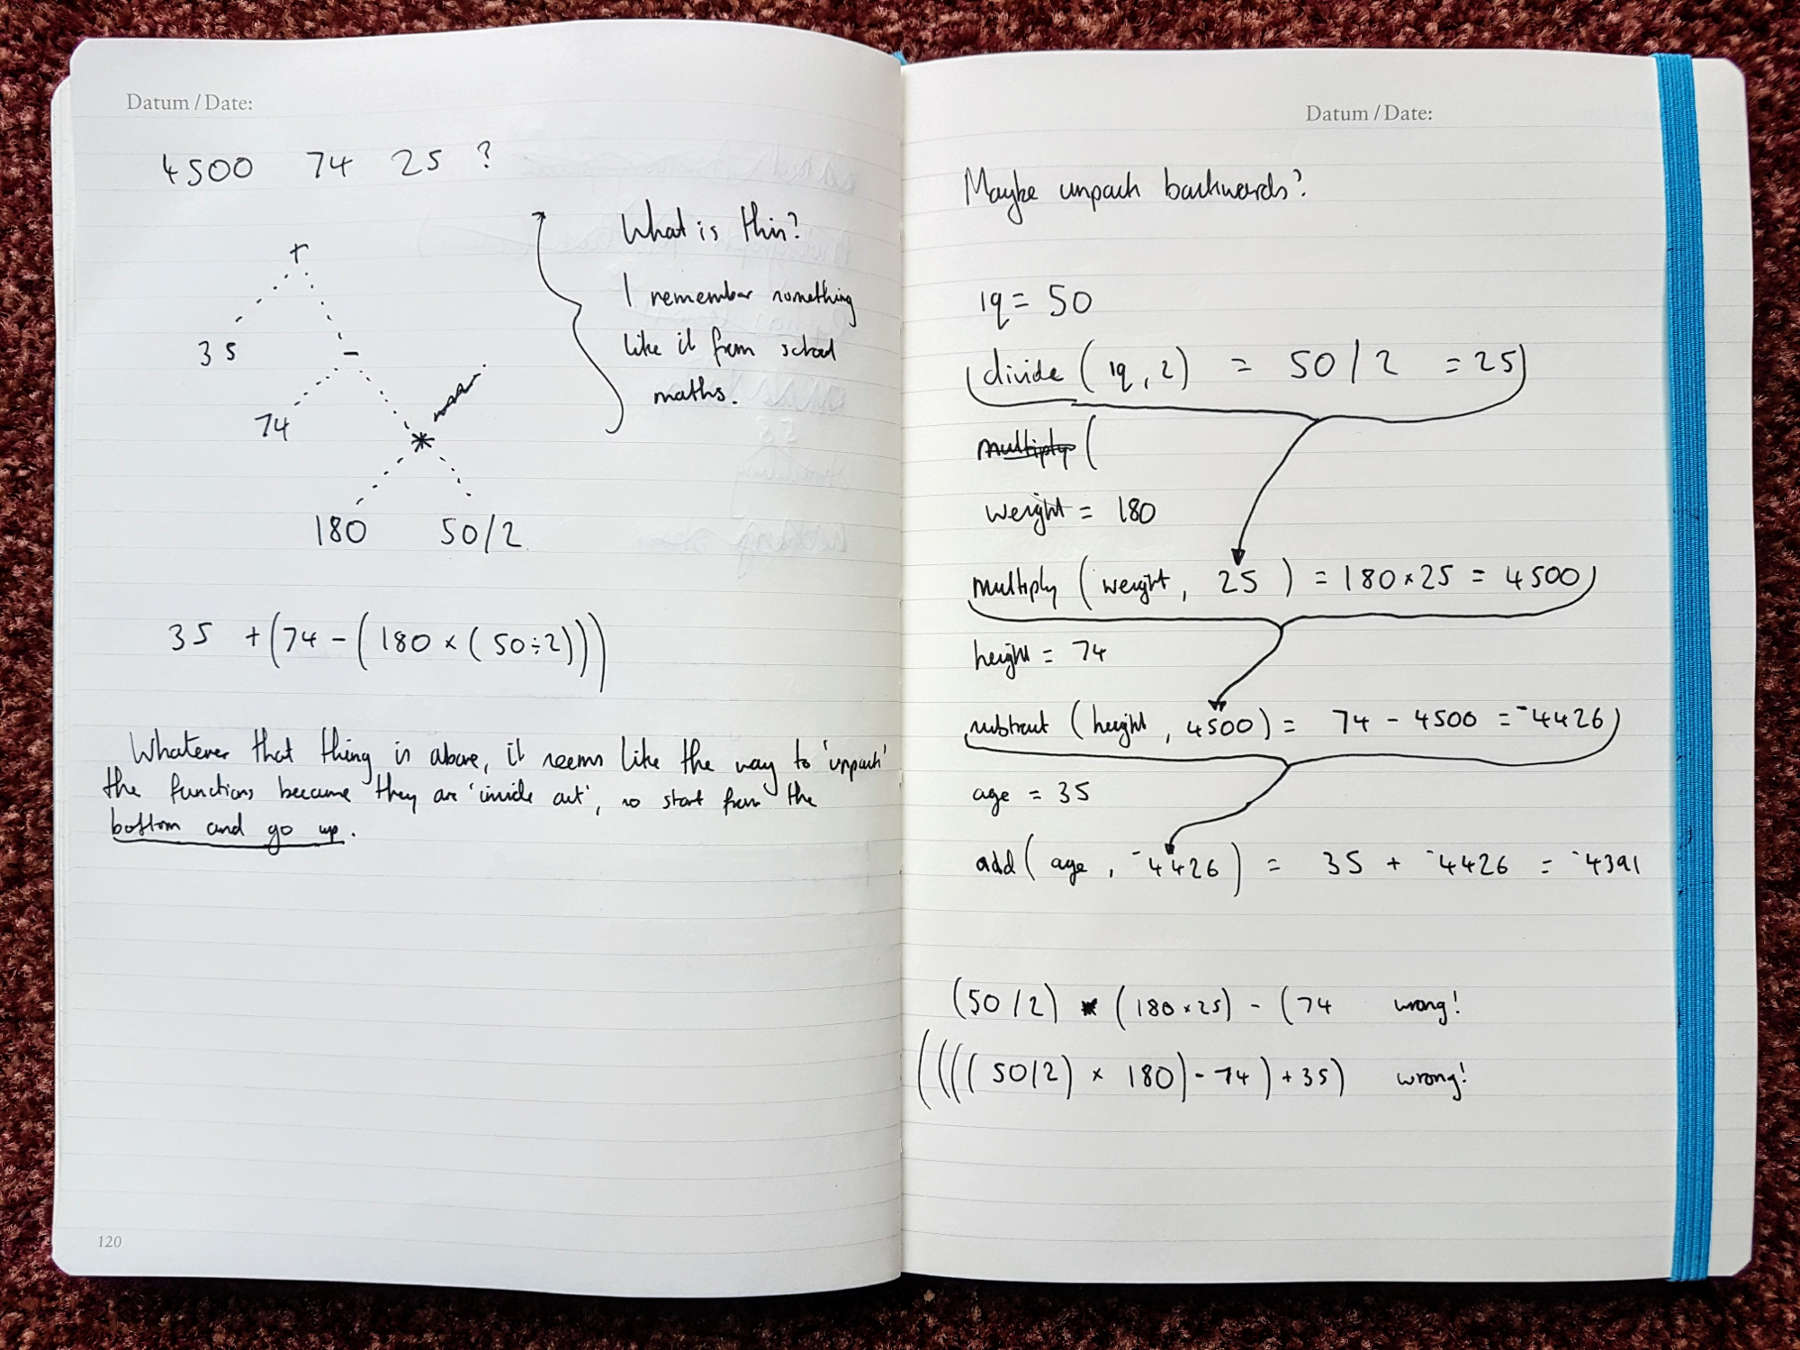 Datum / Date:
4500 74 25 ?
+
35 -
74 *
180 50/2
What is this?
I remember something
like it from school
maths.
35 + (74 - (180 × (50÷2)))
Whatever that thing is above, it seems like the way to 'unpack'
the functions because they are 'inside out', so start from the
bottom and go up.
120
Datum / Date:
Maybe unpack backwards?
iq = 50
divide (iq, 2) = 50/2 = 25
multiply (
weight = 180
multiply (weight, 25) = 180×25 = 4500
height = 74
subtract (height, 4500) = 74 - 4500 = -4426
age = 35
add (age, -4426) = 35 + -4426 = -4391
(50/2) * (180×25) - (74 wrong!
((((50/2) × 180) - 74) + 35) wrong!